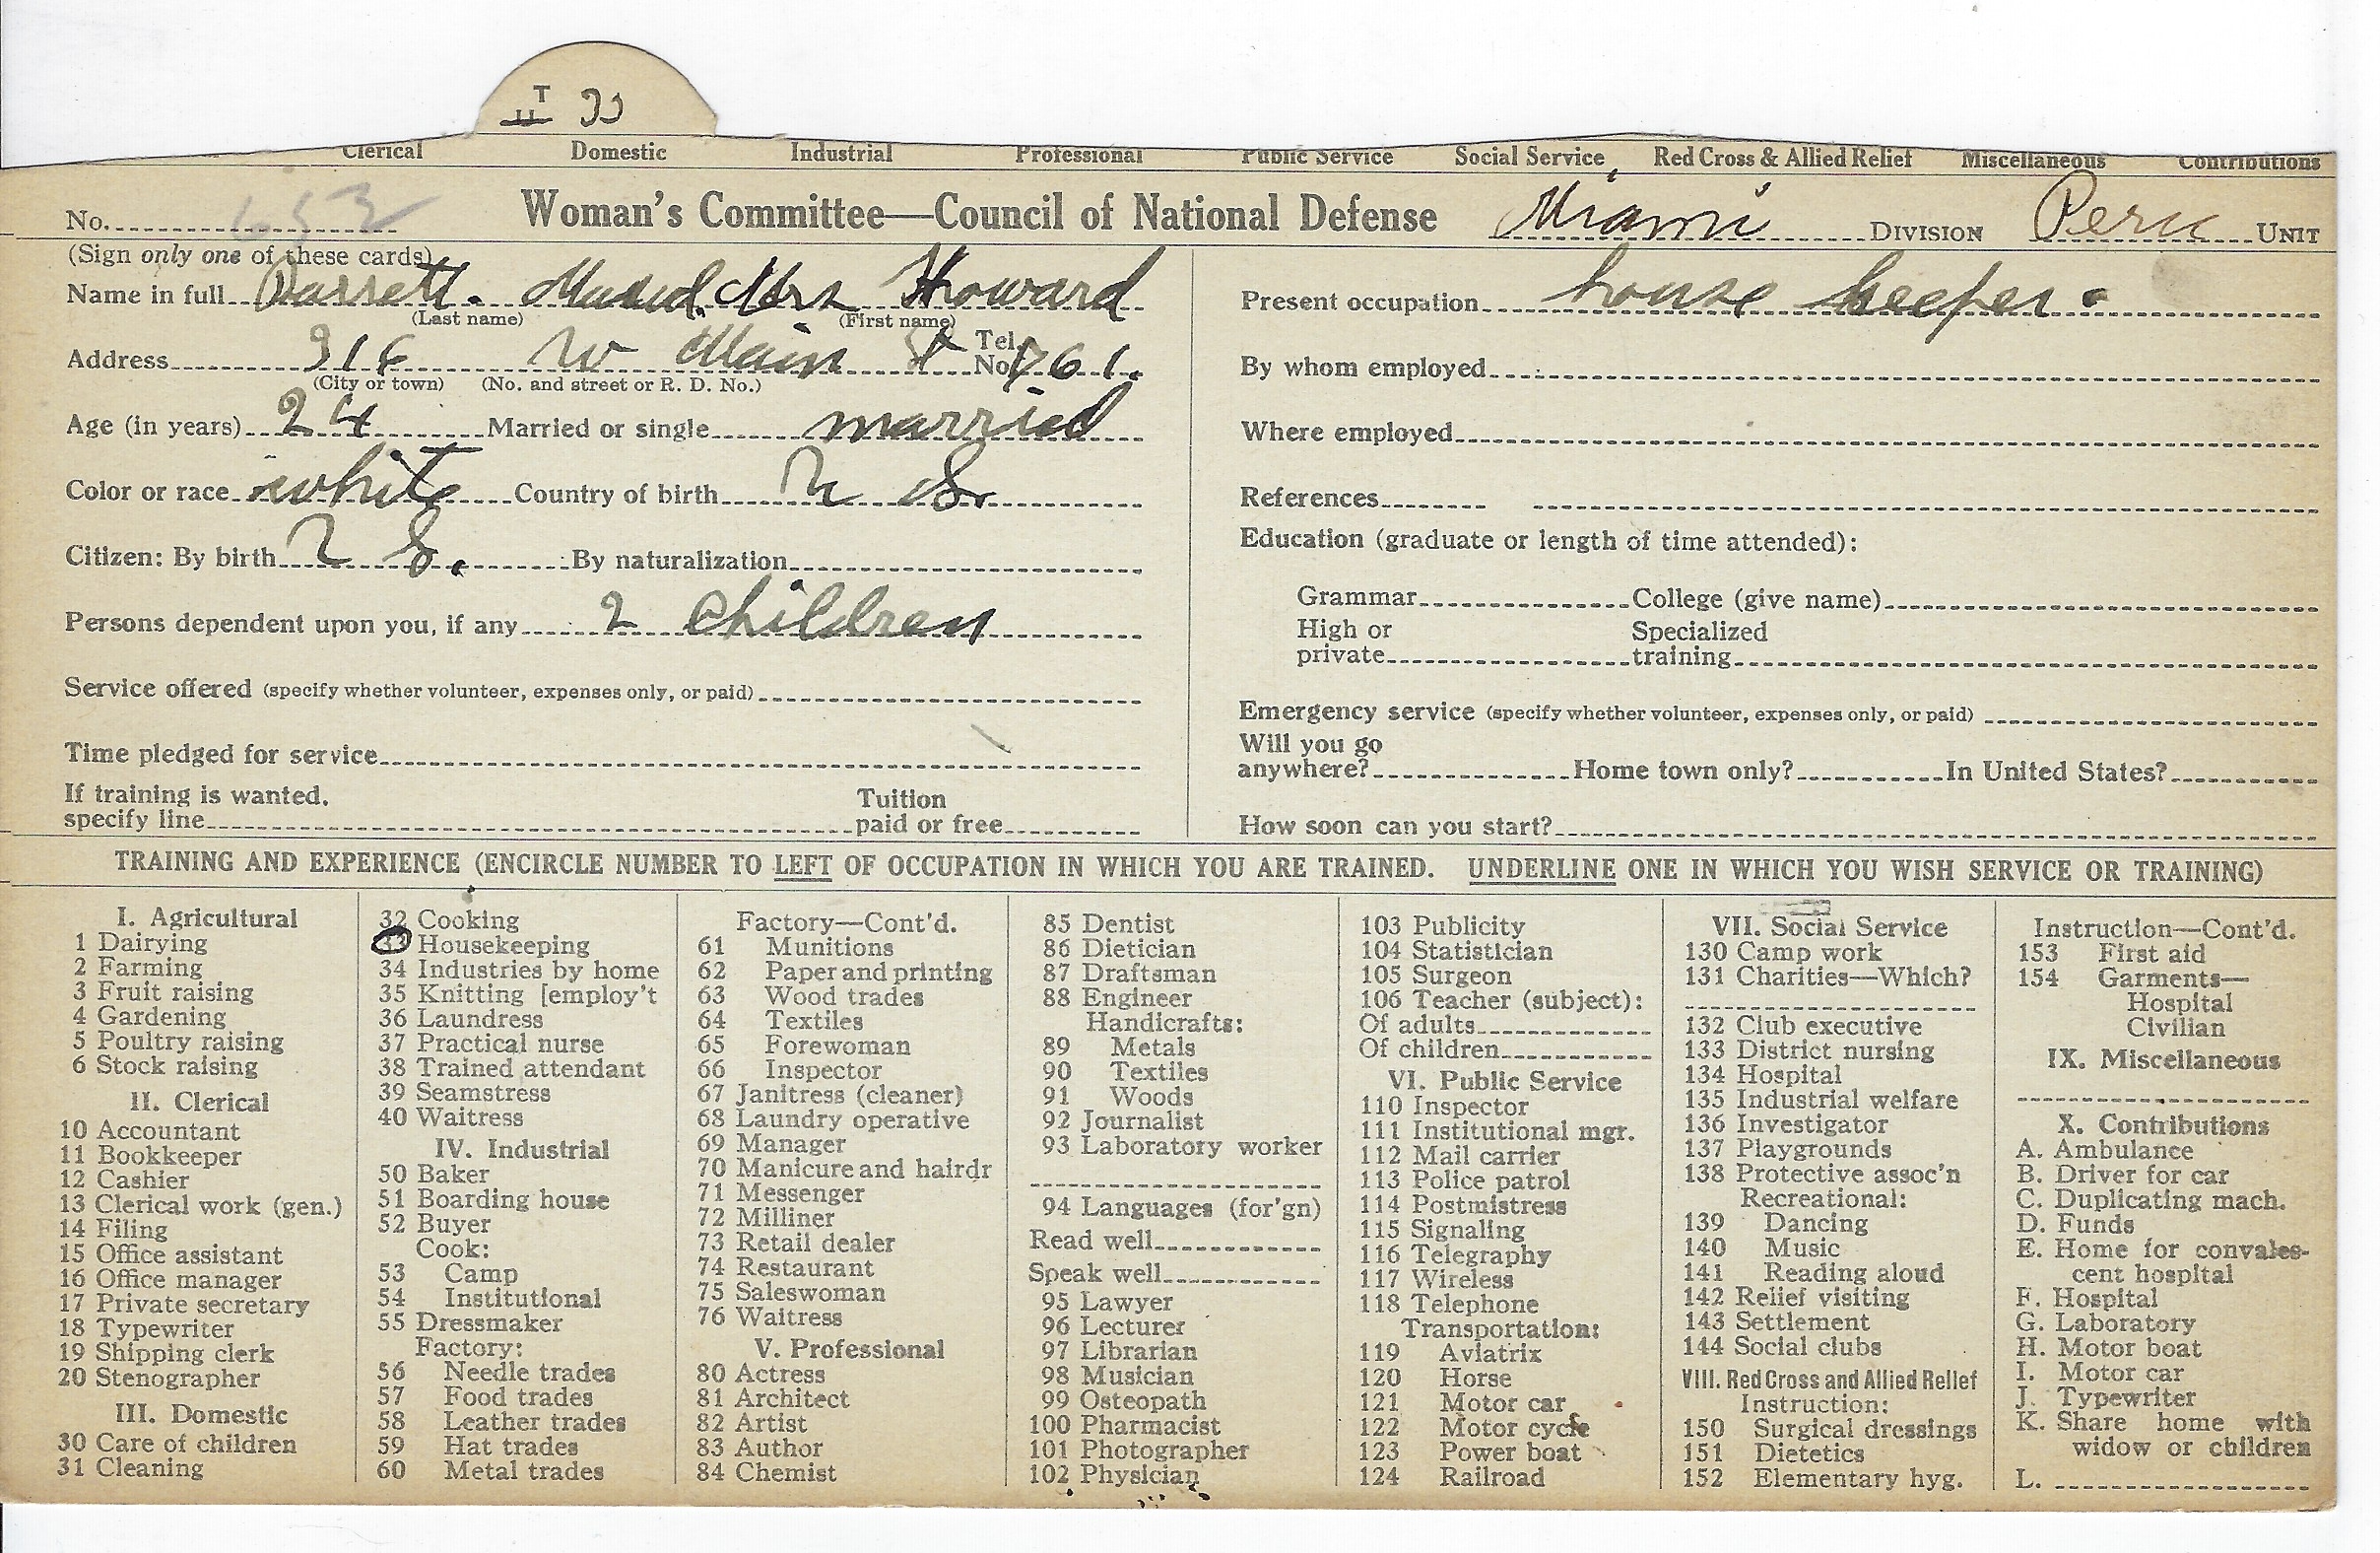 T
II 33
Clerical Domestic Industrial Professional Public Service Social Service Red Cross & Allied Relief Miscellaneous Contributions
No. 652 Woman's Committee—Council of National Defense Miami DIVISION Peru UNIT
(Sign only one of these cards)
Name in full Maud. Mrs Howard
(Last name) (First name)
Address 316 W Main St Tel. No. 761.
(City or town) (No. and street or R. D. No.)
Age (in years) 24 Married or single married
Color or race white Country of birth U S.
Citizen: By birth U S. By naturalization
Persons dependent upon you, if any 2 Children
Service offered (specify whether volunteer, expenses only, or paid)
Time pledged for service
If training is wanted, specify line Tuition paid or free
Present occupation house keeper.
By whom employed
Where employed
References
Education (graduate or length of time attended):
Grammar College (give name)
High or private Specialized training
Emergency service (specify whether volunteer, expenses only, or paid)
Will you go anywhere? Home town only? In United States?
How soon can you start?
TRAINING AND EXPERIENCE (ENCIRCLE NUMBER TO LEFT OF OCCUPATION IN WHICH YOU ARE TRAINED. UNDERLINE ONE IN WHICH YOU WISH SERVICE OR TRAINING)
I. Agricultural
1 Dairying
2 Farming
3 Fruit raising
4 Gardening
5 Poultry raising
6 Stock raising
II. Clerical
10 Accountant
11 Bookkeeper
12 Cashier
13 Clerical work (gen.)
14 Filing
15 Office assistant
16 Office manager
17 Private secretary
18 Typewriter
19 Shipping clerk
20 Stenographer
III. Domestic
30 Care of children
31 Cleaning
32 Cooking
33 Housekeeping
34 Industries by home
35 Knitting [employ't
36 Laundress
37 Practical nurse
38 Trained attendant
39 Seamstress
40 Waitress
IV. Industrial
50 Baker
51 Boarding house
52 Buyer
Cook:
53 Camp
54 Institutional
55 Dressmaker
Factory:
56 Needle trades
57 Food trades
58 Leather trades
59 Hat trades
60 Metal trades
Factory—Cont'd.
61 Munitions
62 Paper and printing
63 Wood trades
64 Textiles
65 Forewoman
66 Inspector
67 Janitress (cleaner)
68 Laundry operative
69 Manager
70 Manicure and hairdr
71 Messenger
72 Milliner
73 Retail dealer
74 Restaurant
75 Saleswoman
76 Waitress
V. Professional
80 Actress
81 Architect
82 Artist
83 Author
84 Chemist
85 Dentist
86 Dietician
87 Draftsman
88 Engineer
Handicrafts:
89 Metals
90 Textiles
91 Woods
92 Journalist
93 Laboratory worker
94 Languages (for'gn)
Read well
Speak well
95 Lawyer
96 Lecturer
97 Librarian
98 Musician
99 Osteopath
100 Pharmacist
101 Photographer
102 Physician
103 Publicity
104 Statistician
105 Surgeon
106 Teacher (subject):
Of adults
Of children
VI. Public Service
110 Inspector
111 Institutional mgr.
112 Mail carrier
113 Police patrol
114 Postmistress
115 Signaling
116 Telegraphy
117 Wireless
118 Telephone
Transportation:
119 Aviatrix
120 Horse
121 Motor car
122 Motor cycle
123 Power boat
124 Railroad
VII. Social Service
130 Camp work
131 Charities—Which?
132 Club executive
133 District nursing
134 Hospital
135 Industrial welfare
136 Investigator
137 Playgrounds
138 Protective assoc'n
Recreational:
139 Dancing
140 Music
141 Reading aloud
142 Relief visiting
143 Settlement
144 Social clubs
VIII. Red Cross and Allied Relief
Instruction:
150 Surgical dressings
151 Dietetics
152 Elementary hyg.
Instruction—Cont'd.
153 First aid
154 Garments—
Hospital
Civilian
IX. Miscellaneous
X. Contributions
A. Ambulance
B. Driver for car
C. Duplicating mach.
D. Funds
E. Home for convales-
cent hospital
F. Hospital
G. Laboratory
H. Motor boat
I. Motor car
J. Typewriter
K. Share home with
widow or children
L.